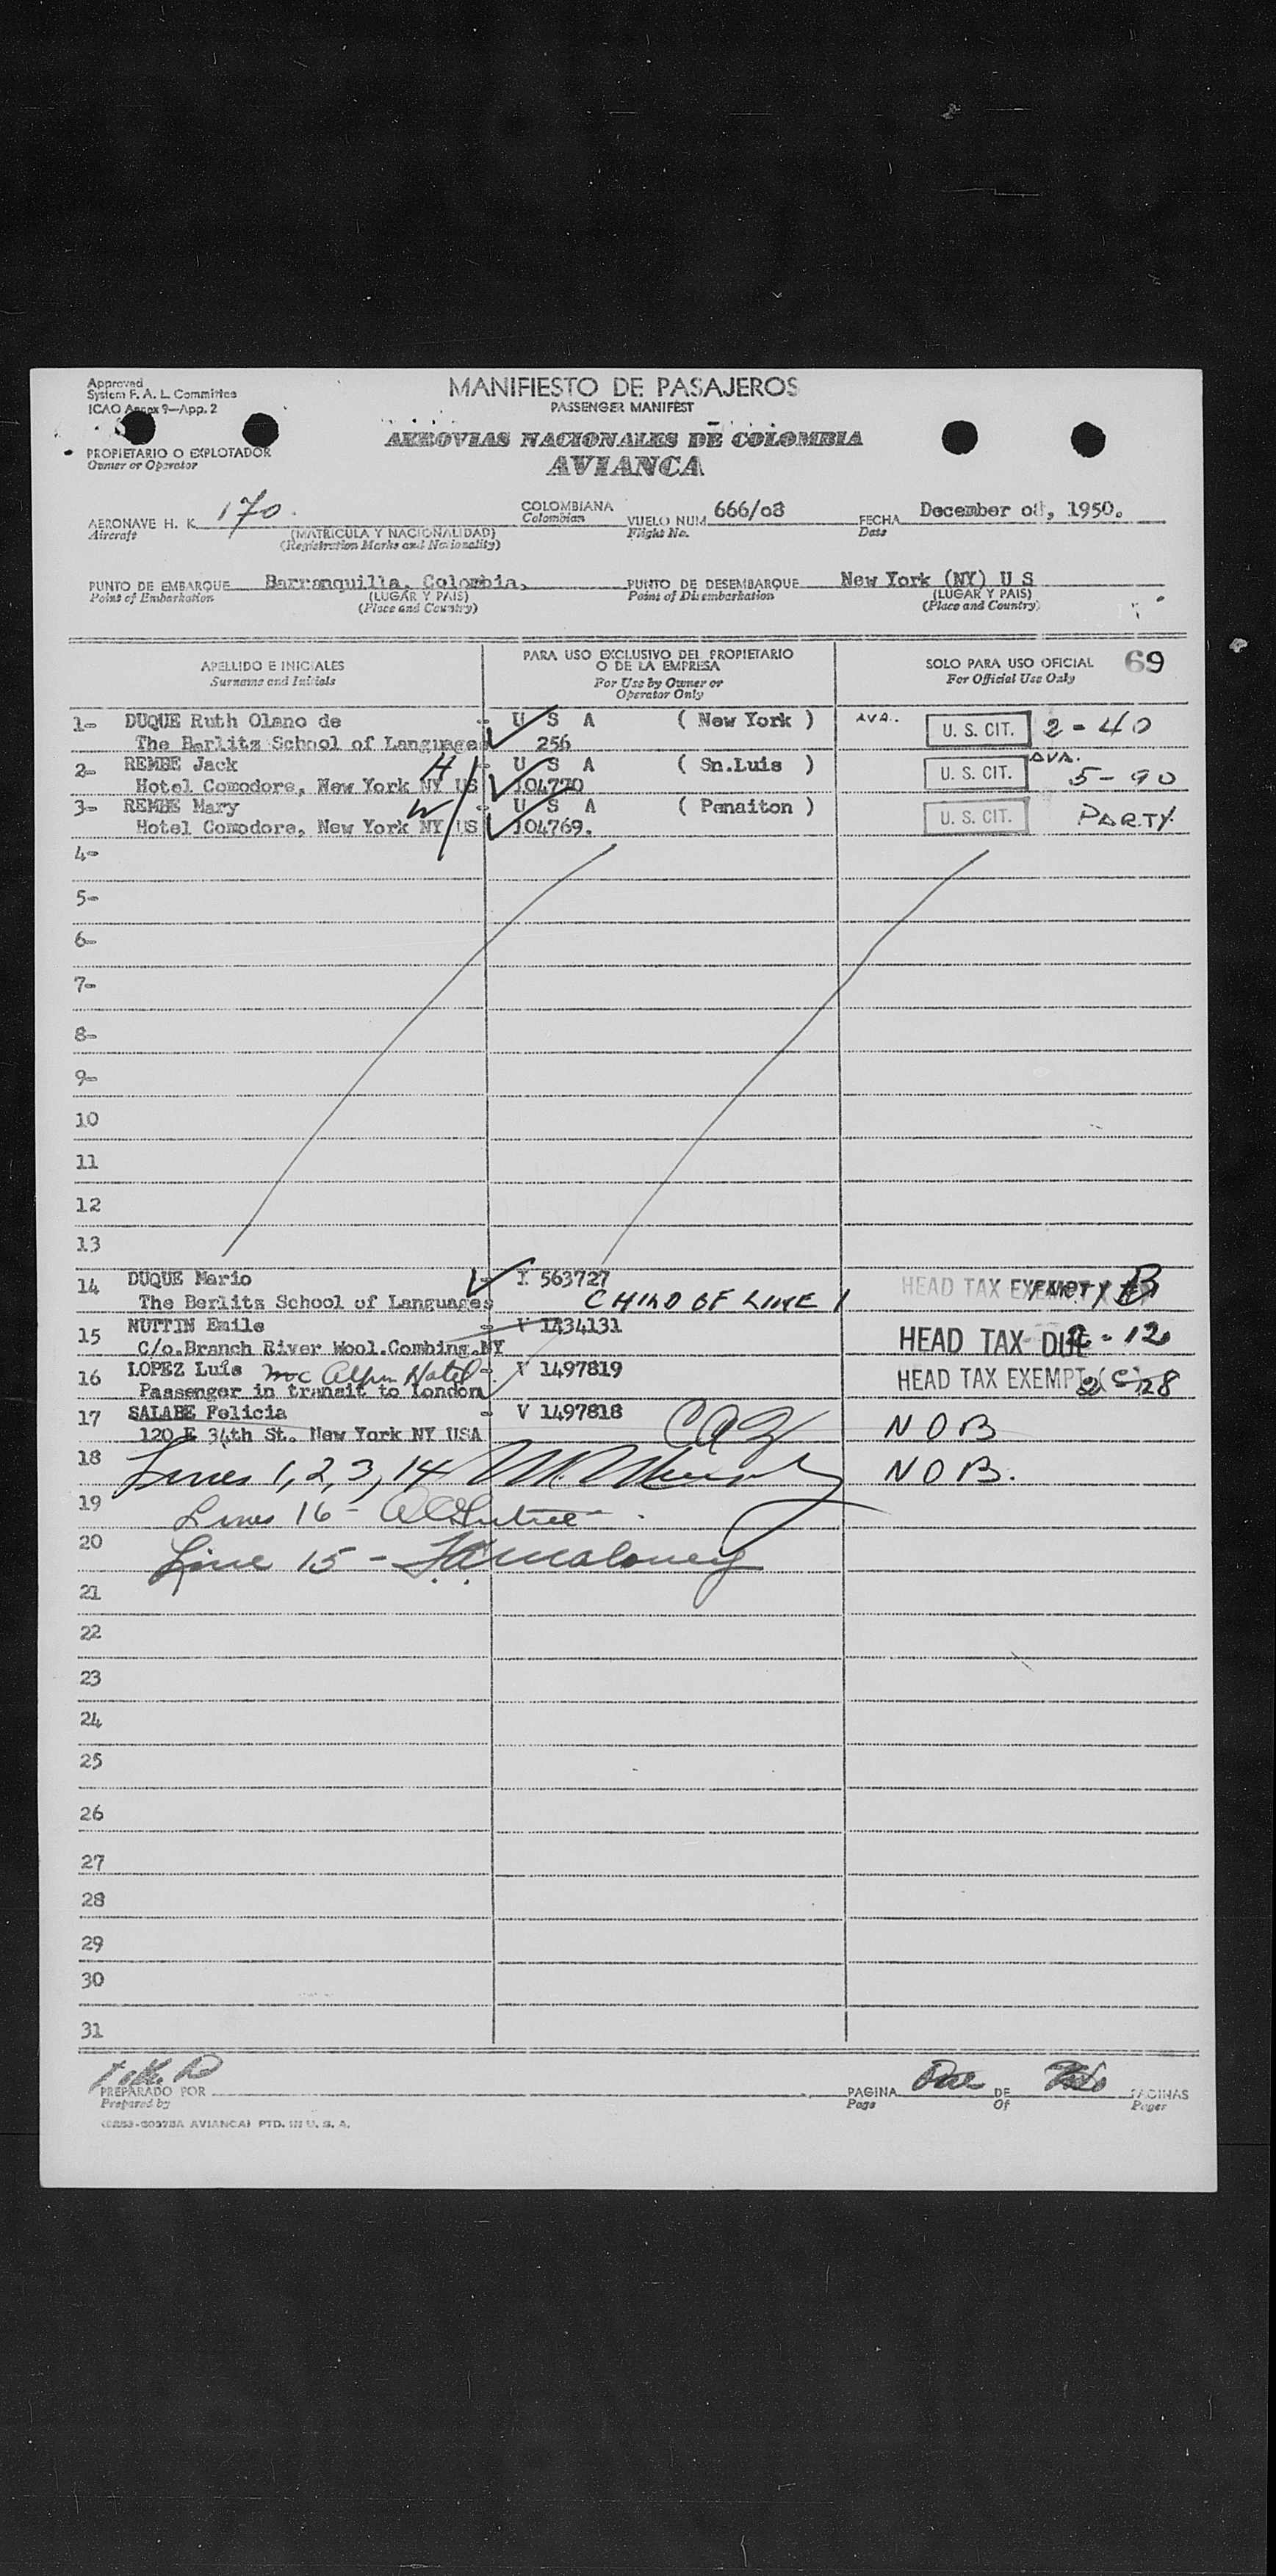 Approved
System F. A. L. Committee
ICAO Annex 9—App. 2
MANIFIESTO DE PASAJEROS
PASSENGER MANIFEST
AEROVIAS NACIONALES DE COLOMBIA
AVIANCA
PROPIETARIO O EXPLOTADOR
Owner or Operator
AERONAVE H. K. 170. COLOMBIANA VUELO NUM. 666/08 FECHA December 08, 1950.
Aircraft (MATRICULA Y NACIONALIDAD) Colombian Flight No. Date
(Registration Marks and Nationality)
PUNTO DE EMBARQUE Barranquilla, Colombia, PUNTO DE DESEMBARQUE New York (NY) U S
Point of Embarkation (LUGAR Y PAIS) Point of Disembarkation (LUGAR Y PAIS)
(Place and Country) (Place and Country)
APELLIDO E INICIALES PARA USO EXCLUSIVO DEL PROPIETARIO O DE LA EMPRESA SOLO PARA USO OFICIAL 69
Surname and Initials For Use by Owner or Operator Only For Official Use Only
1- DUQUE Ruth Olano de - U S A ( New York ) U. S. CIT. 2-40
The Berlitz School of Languages 256
2- REMBE Jack H - U S A ( Sn.Luis ) U. S. CIT. 5-90
Hotel Comodore, New York NY US 104770
3- REMBE Mary W - U S A ( Penaiton ) U. S. CIT. PARTY
Hotel Comodore, New York NY US 104769.
4-
5-
6-
7-
8-
9-
10
11
12
13
14 DUQUE Mario - I 563727 HEAD TAX EXEMPT PARTY
The Berlitz School of Languages CHILD OF LINE 1
15 NUTTIN Emile - V 1434131 HEAD TAX DUE 2-12
C/o.Branch River Wool.Combing.NY
16 LOPEZ Luis Mc Alpin Hotel - V 1497819 HEAD TAX EXEMPT
Passenger in transit to London
17 SALABE Felicia - V 1497818 NOB
120 E 34th St. New York NY USA
18 Lines 1, 2, 3, 14 NOB.
19 Lines 16 -
20 Line 15 - Maloney
21
22
23
24
25
26
27
28
29
30
31
PREPARADO POR PAGINA One DE Two PAGINAS
Prepared by Page Of Pages
AVIANCA) PTD. IN U. S. A.